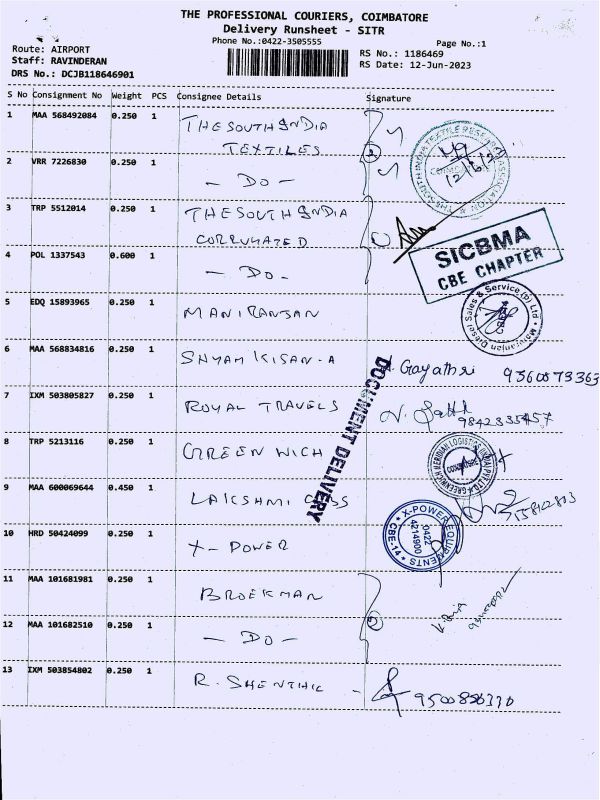 THE PROFESSIONAL COURIERS, COIMBATORE
Delivery Runsheet - SITR
Phone No.:0422-3505555
Page No.:1
Route: AIRPORT
RS No.: 1186469
Staff: RAVINDERAN
RS Date: 12-Jun-2023
DRS No.: DCJB118646901
S No Consignment No Weight PCS Consignee Details Signature
1 MAA 568492084 0.250 1 THE SOUTH INDIA
TEXTILES
THE SOUTH INDIA TEXTILE RESEARCH ASSOCIATION
12/6/23
2 VRR 7226830 0.250 1 - DO -
3 TRP 5512014 0.250 1 THE SOUTH INDIA
CORRUGATED
SICBMA
CBE CHAPTER
4 POL 1337543 0.600 1 - DO -
5 EDQ 15893965 0.250 1 MANIRANJAN
Maniranjan Diesel Sales & Service (P) Ltd
6 MAA 568834816 0.250 1 SHYAM KISAN - A
Gayathri 9360873363
7 IXM 503805827 0.250 1 ROYAL TRAVELS
9842335457
DOCUMENT DELIVERY
8 TRP 5213116 0.250 1 GREEN WICH
GREENWICH MERIDIAN LOGISTICS (INDIA) PVT LTD
COIMBATORE
9 MAA 600069644 0.450 1 LAKSHMI
10 HRD 50424099 0.250 1 X - POWER
X-POWER EQUIPMENTS
0422
4214900
CBE-14
11 MAA 101681981 0.250 1 BROEKMAN
12 MAA 101682510 0.250 1 - DO -
13 IXM 503854802 0.250 1 R. SHENTHIL -
9500886370